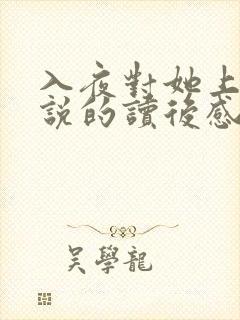 入夜對她上
說的讀後感
吳學龍